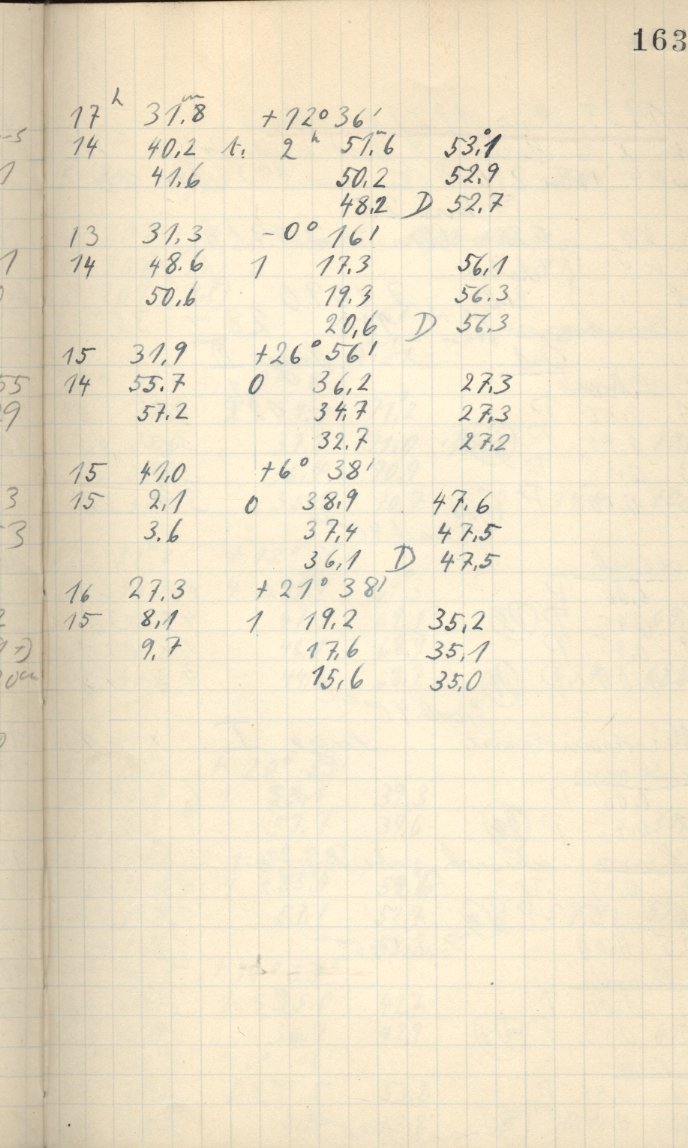 163
17h 31,8m +12°36'
14 40,2 t. 2h 51,6m 53,1°
41,6 50,2 52,9
48,2 D 52,7
13 31,3 -0° 16'
14 48.6 1 17.3 56,1
50,6 19.3 56.3
20,6 D 56,3
15 31,9 +26° 56'
14 55.7 0 36,2 27,3
57.2 34,7 27,3
32.7 27,2
15 41,0 +6° 38'
15 2,1 0 38,9 47,6
3.6 37,4 47,5
36,1 D 47,5
16 27.3 +21° 38'
15 8,1 1 19,2 35,2
9,7 17,6 35,1
15,6 35,0